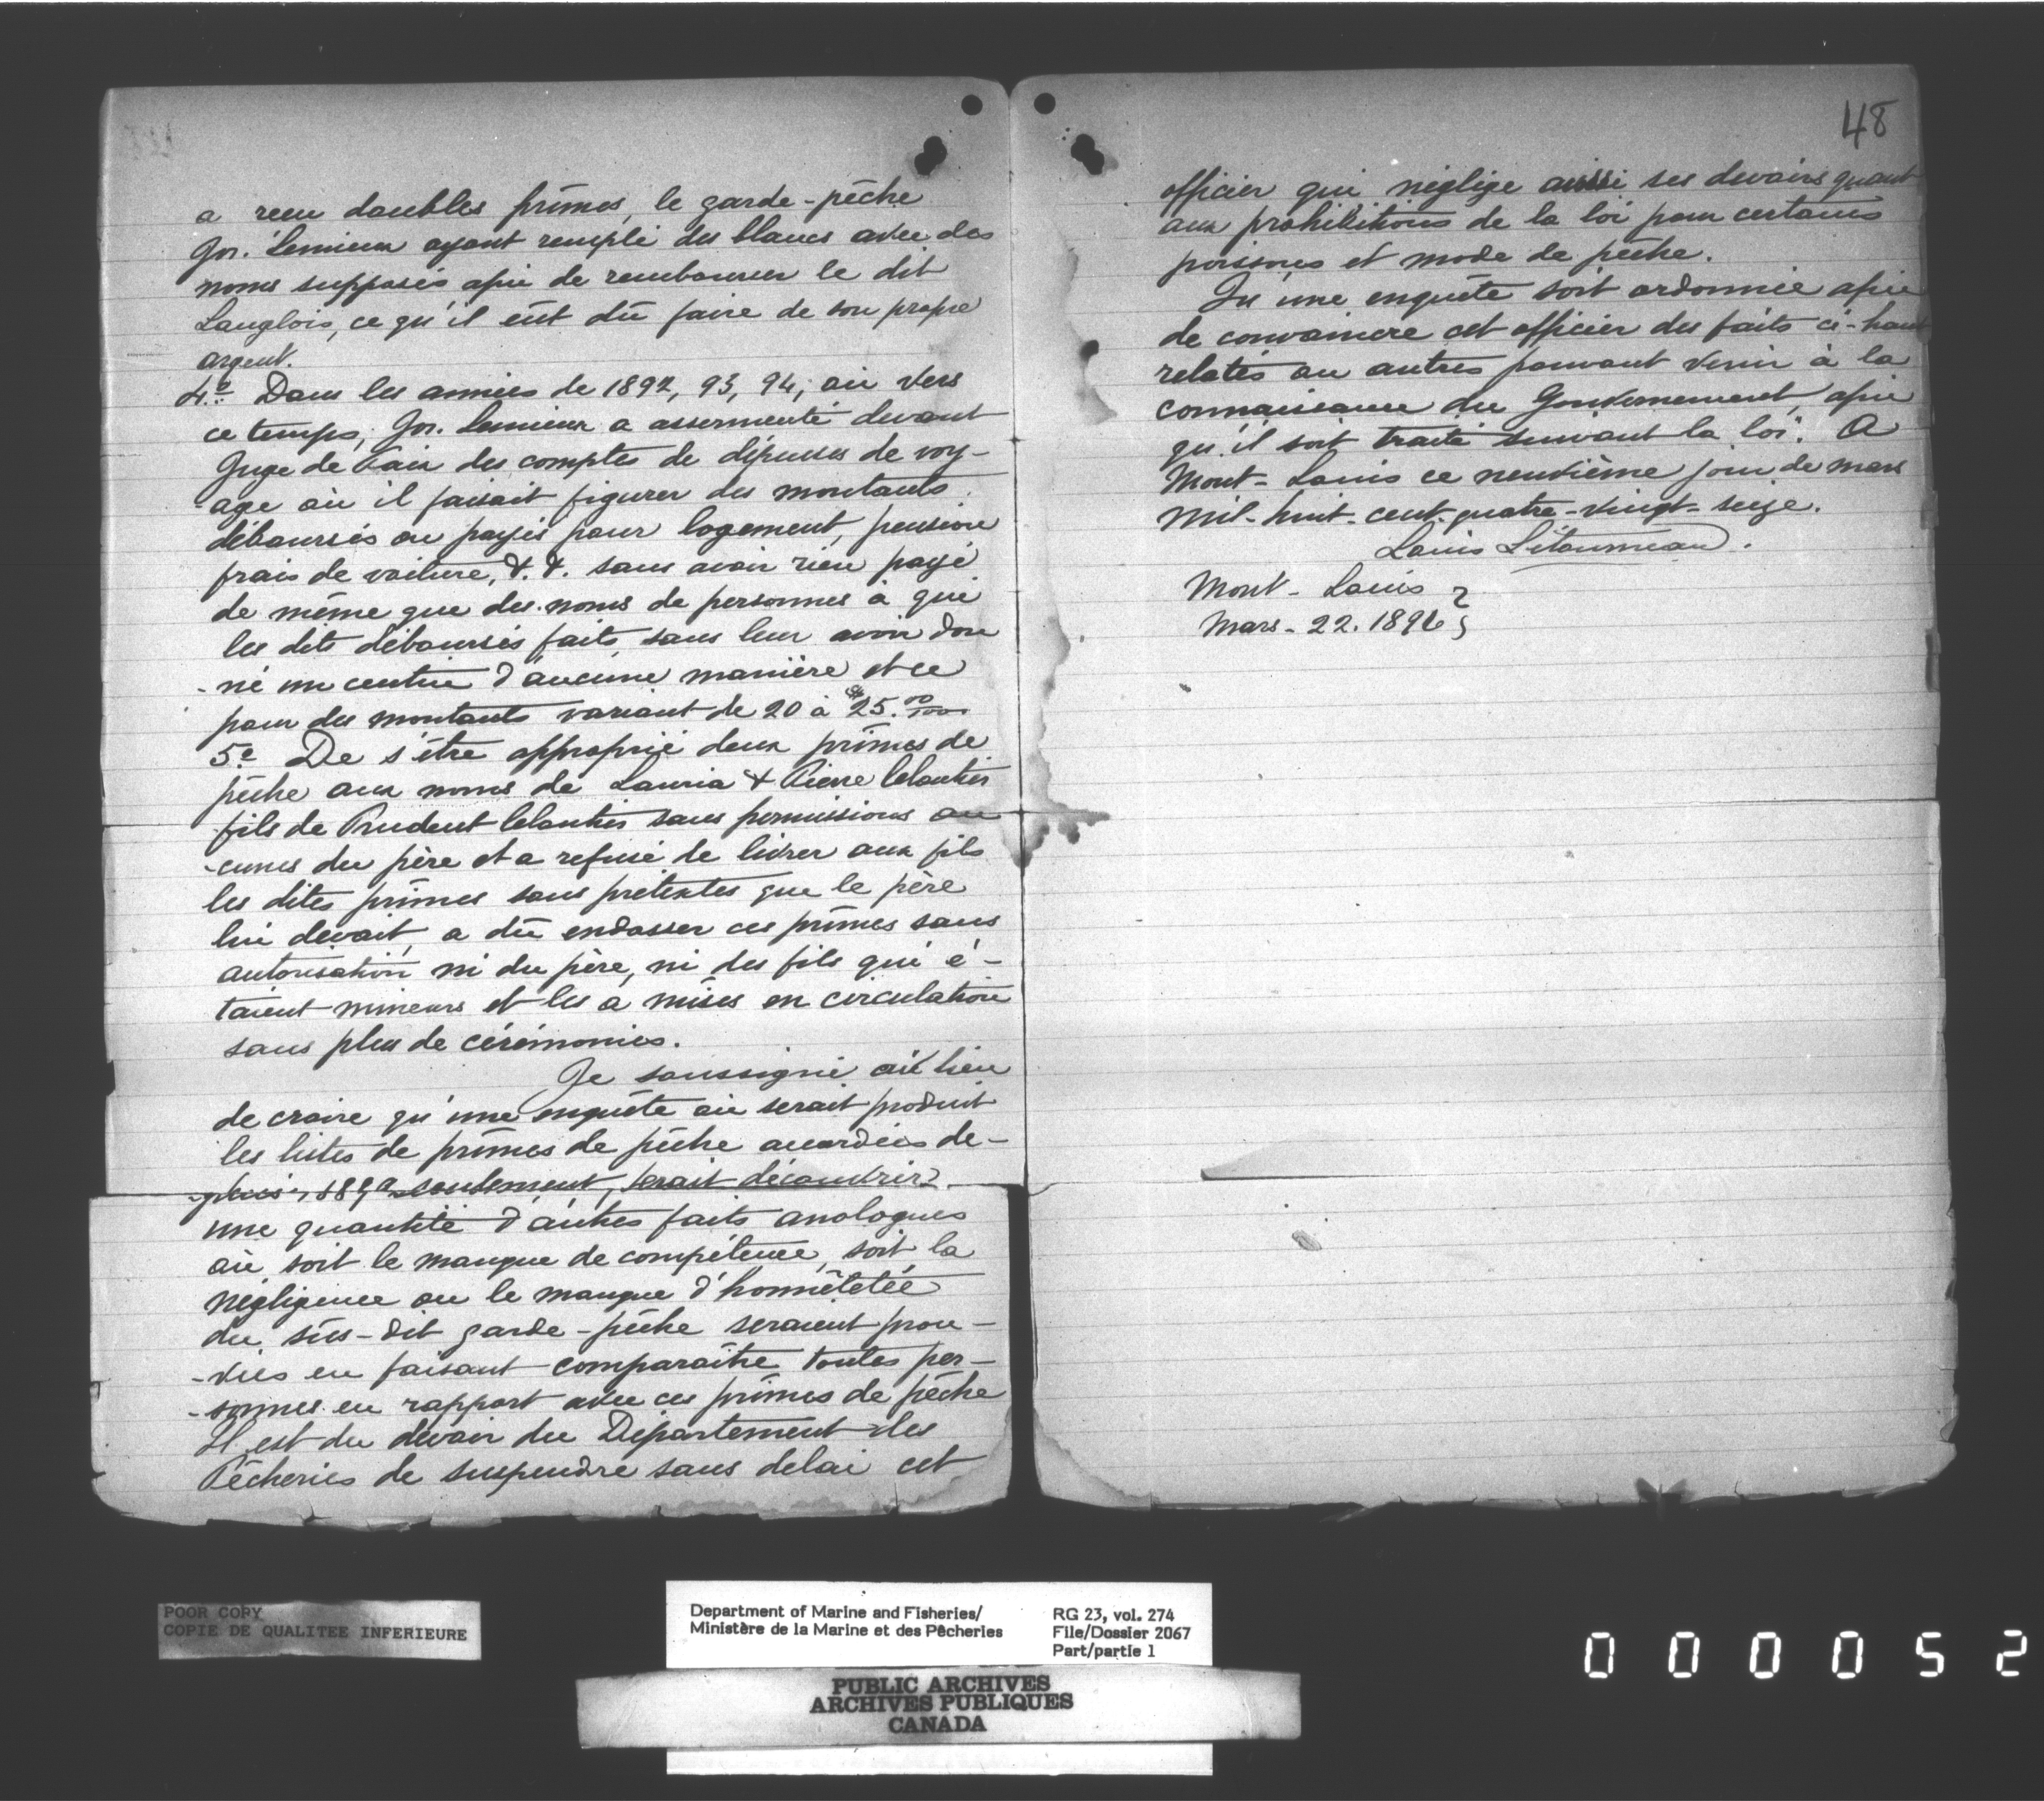 a recu doubles primes, le garde-pêche
Jos. Lemieux ayant rempli des blancs avec des
noms supposés afin de rembourser le dit
Langlois, ce qu'il eût dû faire de son propre
argent.
4.º Dans les années de 1892, 93, 94, ou vers
ce temps, Jos. Lemieux a assermenté devant
Juge de Paix des comptes de dépenses de voy-
age où il faisait figurer des montants
déboursés ou payés pour logement, pension
frais de voiture, &. &. sans avoir rien payé
de même que des noms de personnes à qui
les dits déboursés faits, sans leur avoir don
-né un centin d'aucune manière et ce
pour des montants variant de 20 à $25.00
5.º De s'être approprié deux primes de
pêche aux noms de & Pierre
fils de Prudent sans permissions au
-cunes du père et a refusé de livrer aux fils
les dites primes sous prétextes que le père
lui devait, a dû endosser ces primes sans
autorisation ni du père, ni des fils qui é-
taient mineurs et les a mises en circulation
sans plus de cérémonies.
Je soussigné ai lieu
de croire qu'une enquête où serait produit
les listes de primes de pêche accordées de-
-puis seulement, ferait découvrir
une quantité d'autres faits analogues
où soit le manque de compétence, soit la
négligence ou le manque d'honnêtetée
du sus-dit garde-pêche seraient prou-
-vées en faisant comparaître toutes per-
-sonnes en rapport avec ces primes de pêche
Il est du devoir du Département des
Pêcheries de suspendre sans delai cet
48
officier qui néglige aussi ses devoirs quant
aux prohibitions de la loi pour certains
poissons et mode de pêche.
Qu'une enquête soit ordonnée afin
de convaincre cet officier des faits ci-haut
relatés ou autres pouvant venir à la
connaissance du Gouvernement, afin
qu'il soit traité suivant la loi. A
Mont-Louis ce neuvième jour de mars
mil-huit-cent-quatre-vingt-seize.
Louis Létourneau.
Mont-Louis
Mars-22.1896
POOR COPY
COPIE DE QUALITEE INFERIEURE
Department of Marine and Fisheries/
Ministère de la Marine et des Pêcheries
RG 23, vol. 274
File/Dossier 2067
Part/partie 1
PUBLIC ARCHIVES
ARCHIVES PUBLIQUES
CANADA
000052